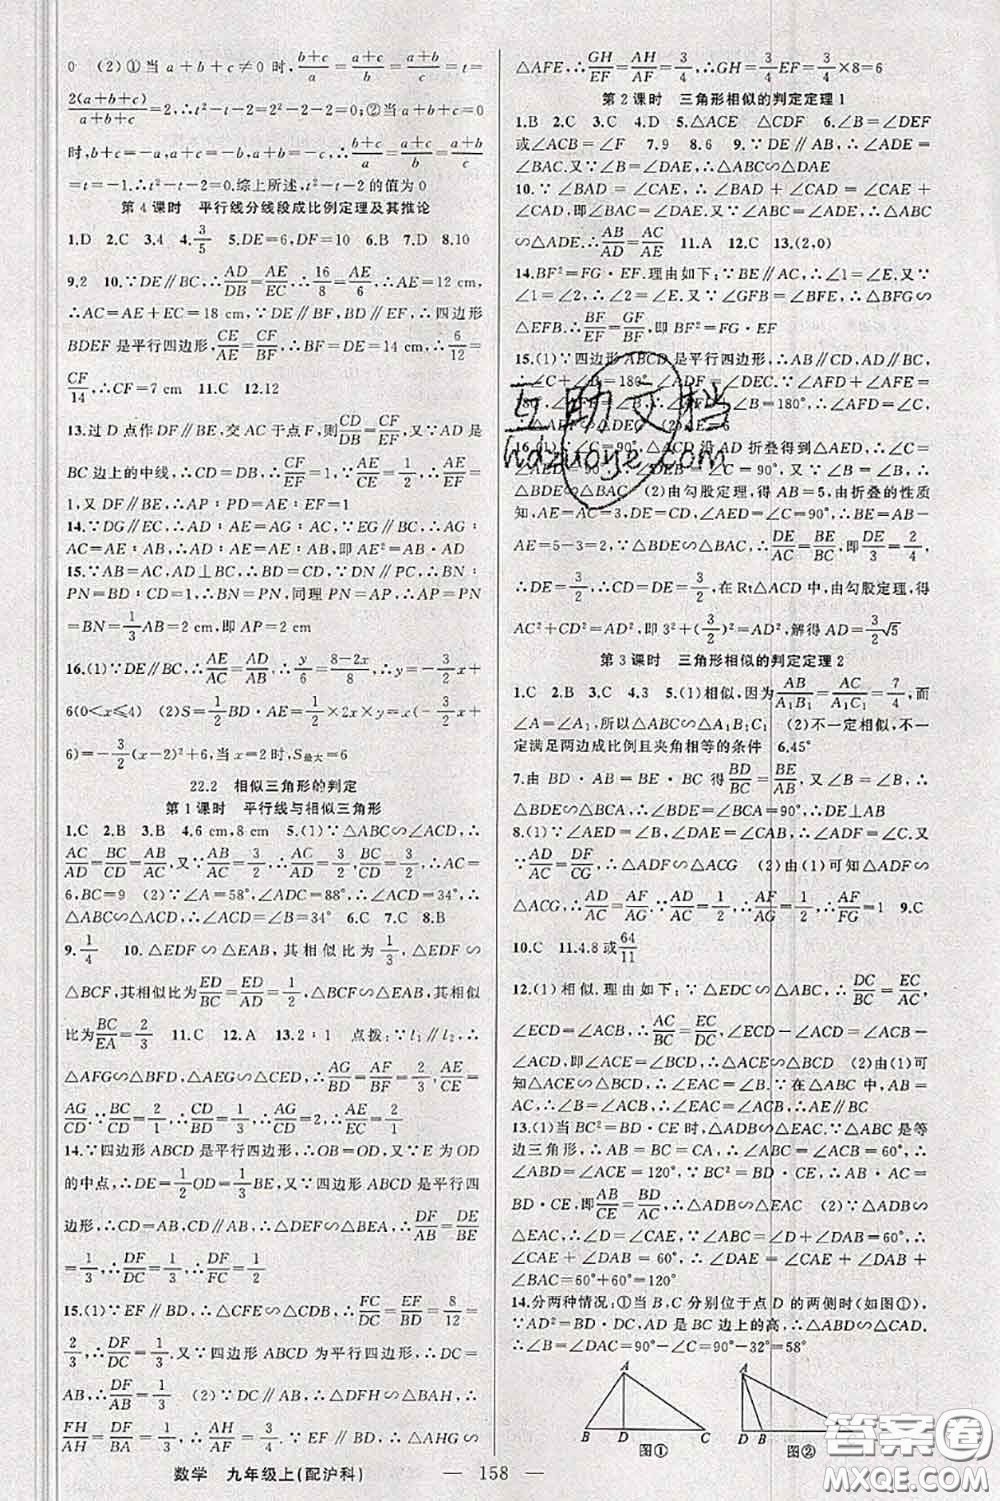 0 (2)①当a+b+c≠0时,(b+c)/a=(b+c)/a=(b+c)/a=t=
2(a+b+c)/(a+b+c)=2,∴t²-t-2=2²-2-2=0;②当a+b+c=0
时,b+c=-a,∴(b+c)/a=(b+c)/a=(b+c)/a=t=-a/a
=t=-1.∴t²-t-2=0.综上所述,t²-t-2的值为0
第4课时 平行线分线段成比例定理及其推论
1.D 2.C 3.4 4.3/5 5.DE=6,DF=10 6.B 7.D 8.10
9.2 10.∵DE∥BC,∴AD/DB=AE/EC,∴16/8=AE/6,∴AE=12 cm,
∴AC=AE+EC=18 cm,∵DE∥BF,BD∥EF,∴四边形
BDEF是平行四边形,CE/AE=CF/BF,∴BF=DE=14 cm,∴6/12=
CF/14,∴CF=7 cm 11.C 12.12
13.过D点作DF∥BE,交AC于点F,则CD/DB=CF/EF,又∵AD是
BC边上的中线,∴CD=DB,∴CF=EF,∵AE/EC=1/2,∴AE/EF=
1,又DF∥BE,∴AP∶PD=AE∶EF=1
14.∵DG∥EC,∴AD∶AE=AG∶AC,∵EG∥BC,∴AG∶
AC=AE∶AB,∴AD∶AE=AE∶AB,即AE²=AB·AD
15.∵AB=AC,AD⊥BC,∴BD=CD,∵DN∥PC,∴BN∶
PN=BD∶CD=1,∴BN=PN,同理PN=AP,∴AP=PN
=BN=1/3AB=2 cm,即AP=2 cm
16.(1)∵DE∥BC,∴AE/AC=AD/AB,∴y/6=(8-2x)/8,∴y=-3/2x+
6(0<x≤4) (2)S=1/2BD·AE=1/2×2x×y=x(-3/2x+
6)=-3/2(x-2)²+6,当x=2时,S最大=6
22.2 相似三角形的判定
第1课时 平行线与相似三角形
1.C 2.B 3.B 4.6 cm,8 cm 5.(1)∵△ABC∽△ACD,∴
AC/AD=BC/CD=AB/AC,又∵AB/AC=3/2,∴AC/4=3/2,BC/6=3/2,∴AC=
6,BC=9 (2)∵∠A=58°,∠ADC=88°,∴∠ACD=34°,∵
△ABC∽△ACD,∴∠ACD=∠B=34° 6.C 7.C 8.B
9.1/4 10.△EDF∽△EAB,其相似比为1/3,△EDF∽
△BCF,其相似比为ED/BC=ED/AD=1/2,△BCF∽△EAB,其相似
比为BC/EA=2/3 11.C 12.A 13.2∶1 点拨:∵l₁∥l₂,∴
△AFG∽△BFD,△AEG∽△CED,∴AG/BD=AF/BF=2/3,AE/CE=
AG/CD.∵BC/CD=2/1,∴CD/BD=1/3,∴AG/CD=2,∴AE/EC=2/1
14.∵四边形ABCD是平行四边形,∴OB=OD,又∵E为OD
的中点,∴DE=1/2OD=1/3BE,又∵四边形ABCD是平行四
边形,∴CD=AB,CD∥AB,∴△DEF∽△BEA,∴DF/AB=DE/BE
=1/3,∴DF/DC=1/3,∴DF/FC=1/2
15.(1)∵EF∥BD,∴△CFE∽△CDB,∴FC/DC=EF/BD=8/12=
2/3,∴DF/DC=1/3,又∵四边形ABCD为平行四边形,∴DC=
AB,∴DF/AB=1/3 (2)∵DF∥AB,∴△DFH∽△BAH,∴
FH/AH=DF/BA=1/3,∴AH/AF=3/4,∵EF∥BD,∴△AHG∽
△AFE,∴GH/EF=AH/AF=3/4,∴GH=3/4EF=3/4×8=6
第2课时 三角形相似的判定定理1
1.B 2.C 3.C 4.D 5.△ACE △CDF 6.∠B=∠DEF
或∠ACB=∠F 7.9 8.6 9.∵DE∥AB,∴∠ADE=
∠BAD.又∵∠B=∠DAE,∴△ABC∽△DAE
10.∵∠BAC=∠BAD+∠CAD,∠DAE=∠CAE+
∠CAD,即∠BAC=∠DAE,又∵∠B=∠D,∴△ABC
∽△ADE.∴AB/AD=AC/AE 11.A 12.C 13.(2,0)
14.BF²=FG·EF.理由如下:∵BE∥AC,∴∠1=∠E.又∵
∠1=∠2,∴∠2=∠E,又∵∠GFB=∠BFE,∴△BFG∽
△EFB.∴BF/EF=GF/BF,即BF²=FG·EF
15.(1)∵四边形ABCD是平行四边形,∴AB∥CD,AD∥BC,
∴∠C+∠B=180°
∠B=180°,∴∠AFD=∠C,
16.(1)∵∠C=90°,△ACD沿AD折叠得到△AED,∴∠C=
∠AED=90°,∴∠DEB=∠C=90°,又∵∠B=∠B,∴
△BDE∽△BAC (2)由勾股定理,得AB=5,由折叠的性质
知,AE=AC=3,DE=CD,∠AED=∠C=90°,∴BE=AB-
AE=5-3=2,∵△BDE∽△BAC,∴DE/AC=BE/BC,即DE/3=2/4,
∴DE=3/2,∴CD=DE=3/2,在Rt△ACD中,由勾股定理,得
AC²+CD²=AD²,即3²+(3/2)²=AD²,解得AD=3/2√5
第3课时 三角形相似的判定定理2
1.C 2.B 3.C 4.3 5.(1)相似,因为AB/A₁B₁=AC/A₁C₁=7/4,而
∠A=∠A₁,所以△ABC∽△A₁B₁C₁ (2)不一定相似,不一
定满足两边成比例且夹角相等的条件 6.45°
7.由BD·AB=BE·BC,得BD/BC=BE/BA,又∵∠B=∠B,∴
△DBE∽△CBA,∴∠BDE=∠C=90°,∴DE⊥AB
8.(1)∵∠AED=∠B,∠DAE=∠BAC,∴∠ADF=∠C.又
∵AD/AC=DF/CG,∴△ADF∽△ACG (2)由(1)可知△ADF∽
△ACG,∴AD/AC=AF/AG,∵AD/AC=1/2,∴AF/AG=1/2,∴AF/FG=1 9.C
10.C 11.4.8或64/11
12.(1)相似.理由如下:∵△EDC∽△ABC,∴DC/BC=EC/AC,
∠ECD=∠ACB,∴AC/BC=EC/DC,∠ECD-∠ACD=∠ACB-
∠ACD,即∠ACE=∠BCD,∴△ACE∽△BCD (2)由(1)可
知△ACE∽△BCD,∴∠B=∠EAC.∵在△ABC中,AB=
AC,∴∠B=∠ACB,∴∠EAC=∠ACB,∴AE∥BC
13.(1)当BC²=BD·CE时,△ADB∽△EAC,∵△ABC是等
边三角形,∴BC=AB=AC,∠ABC=∠ACB=60°,∴
∠ABD=∠ACE=120°,∵BC²=BD·CE,∴AB·AC=
BD·CE,即AB/CE=BD/AC,∴△ADB∽△EAC (2)∵△ADB
∽△EAC,∴∠CAE=∠D,∵∠ABC=∠D+∠DAB=60°,∴
∠CAE+∠DAB=60°,∴∠DAE=∠CAE+∠DAB+
∠BAC=60°+60°=120°
14.分两种情况:①当B,C分别位于点D的两侧时(如图①),
∵AD²=BD·CD,AD是BC边上的高,∴△ABD∽△CAD.
∴∠B=∠DAC=90°-∠C=90°-32°=58°
A B D C
A D B
图① 图②
互助文档
hdzuoye.com
答案圈
MXQE.COM
数学 九年级上(配沪科) — 158 —